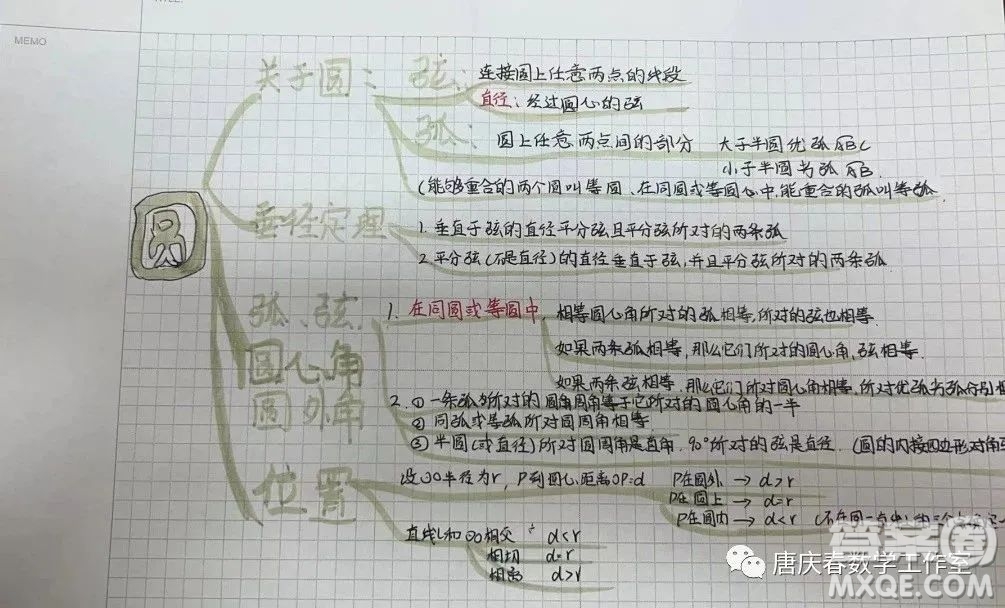 MEMO
关于圆：
弦：连接圆上任意两点的线段
直径：经过圆心的弦
弧：圆上任意两点间的部分 大于半圆优弧ABC
小于半圆劣弧AB.
(能够重合的两个圆叫等圆、在同圆或等圆心中,能重合的弧叫等弧
圆
垂径定理
1. 垂直于弦的直径平分弦且平分弦所对的两条弧
2. 平分弦(不是直径)的直径垂直于弦,并且平分弦所对的两条弧.
弧、弦、
圆心角
圆外角
1. 在同圆或等圆中,相等圆心角所对的弧相等,所对的弦也相等.
如果两条弧相等,那么它们所对的圆心角、弦相等.
如果两条弦相等,那么它们所对圆心角相等,所对优弧劣弧分别相
2. ① 一条弧所对的圆周角等于它所对的圆心角的一半
② 同弧或等弧所对圆周角相等
③ 半圆(或直径)所对圆周角是直角. 90°所对的弦是直径. (圆的内接四边形对角
位置
设⊙O半径为r, P到圆心距离OP=d P在圆外 → d>r
P在圆上 → d=r
P在圆内 → d<r (不在同一直
直线l和⊙O相交 d<r
相切 d=r
相离 d>r
唐庆春数学工作室
答案圈
MXQE.COM